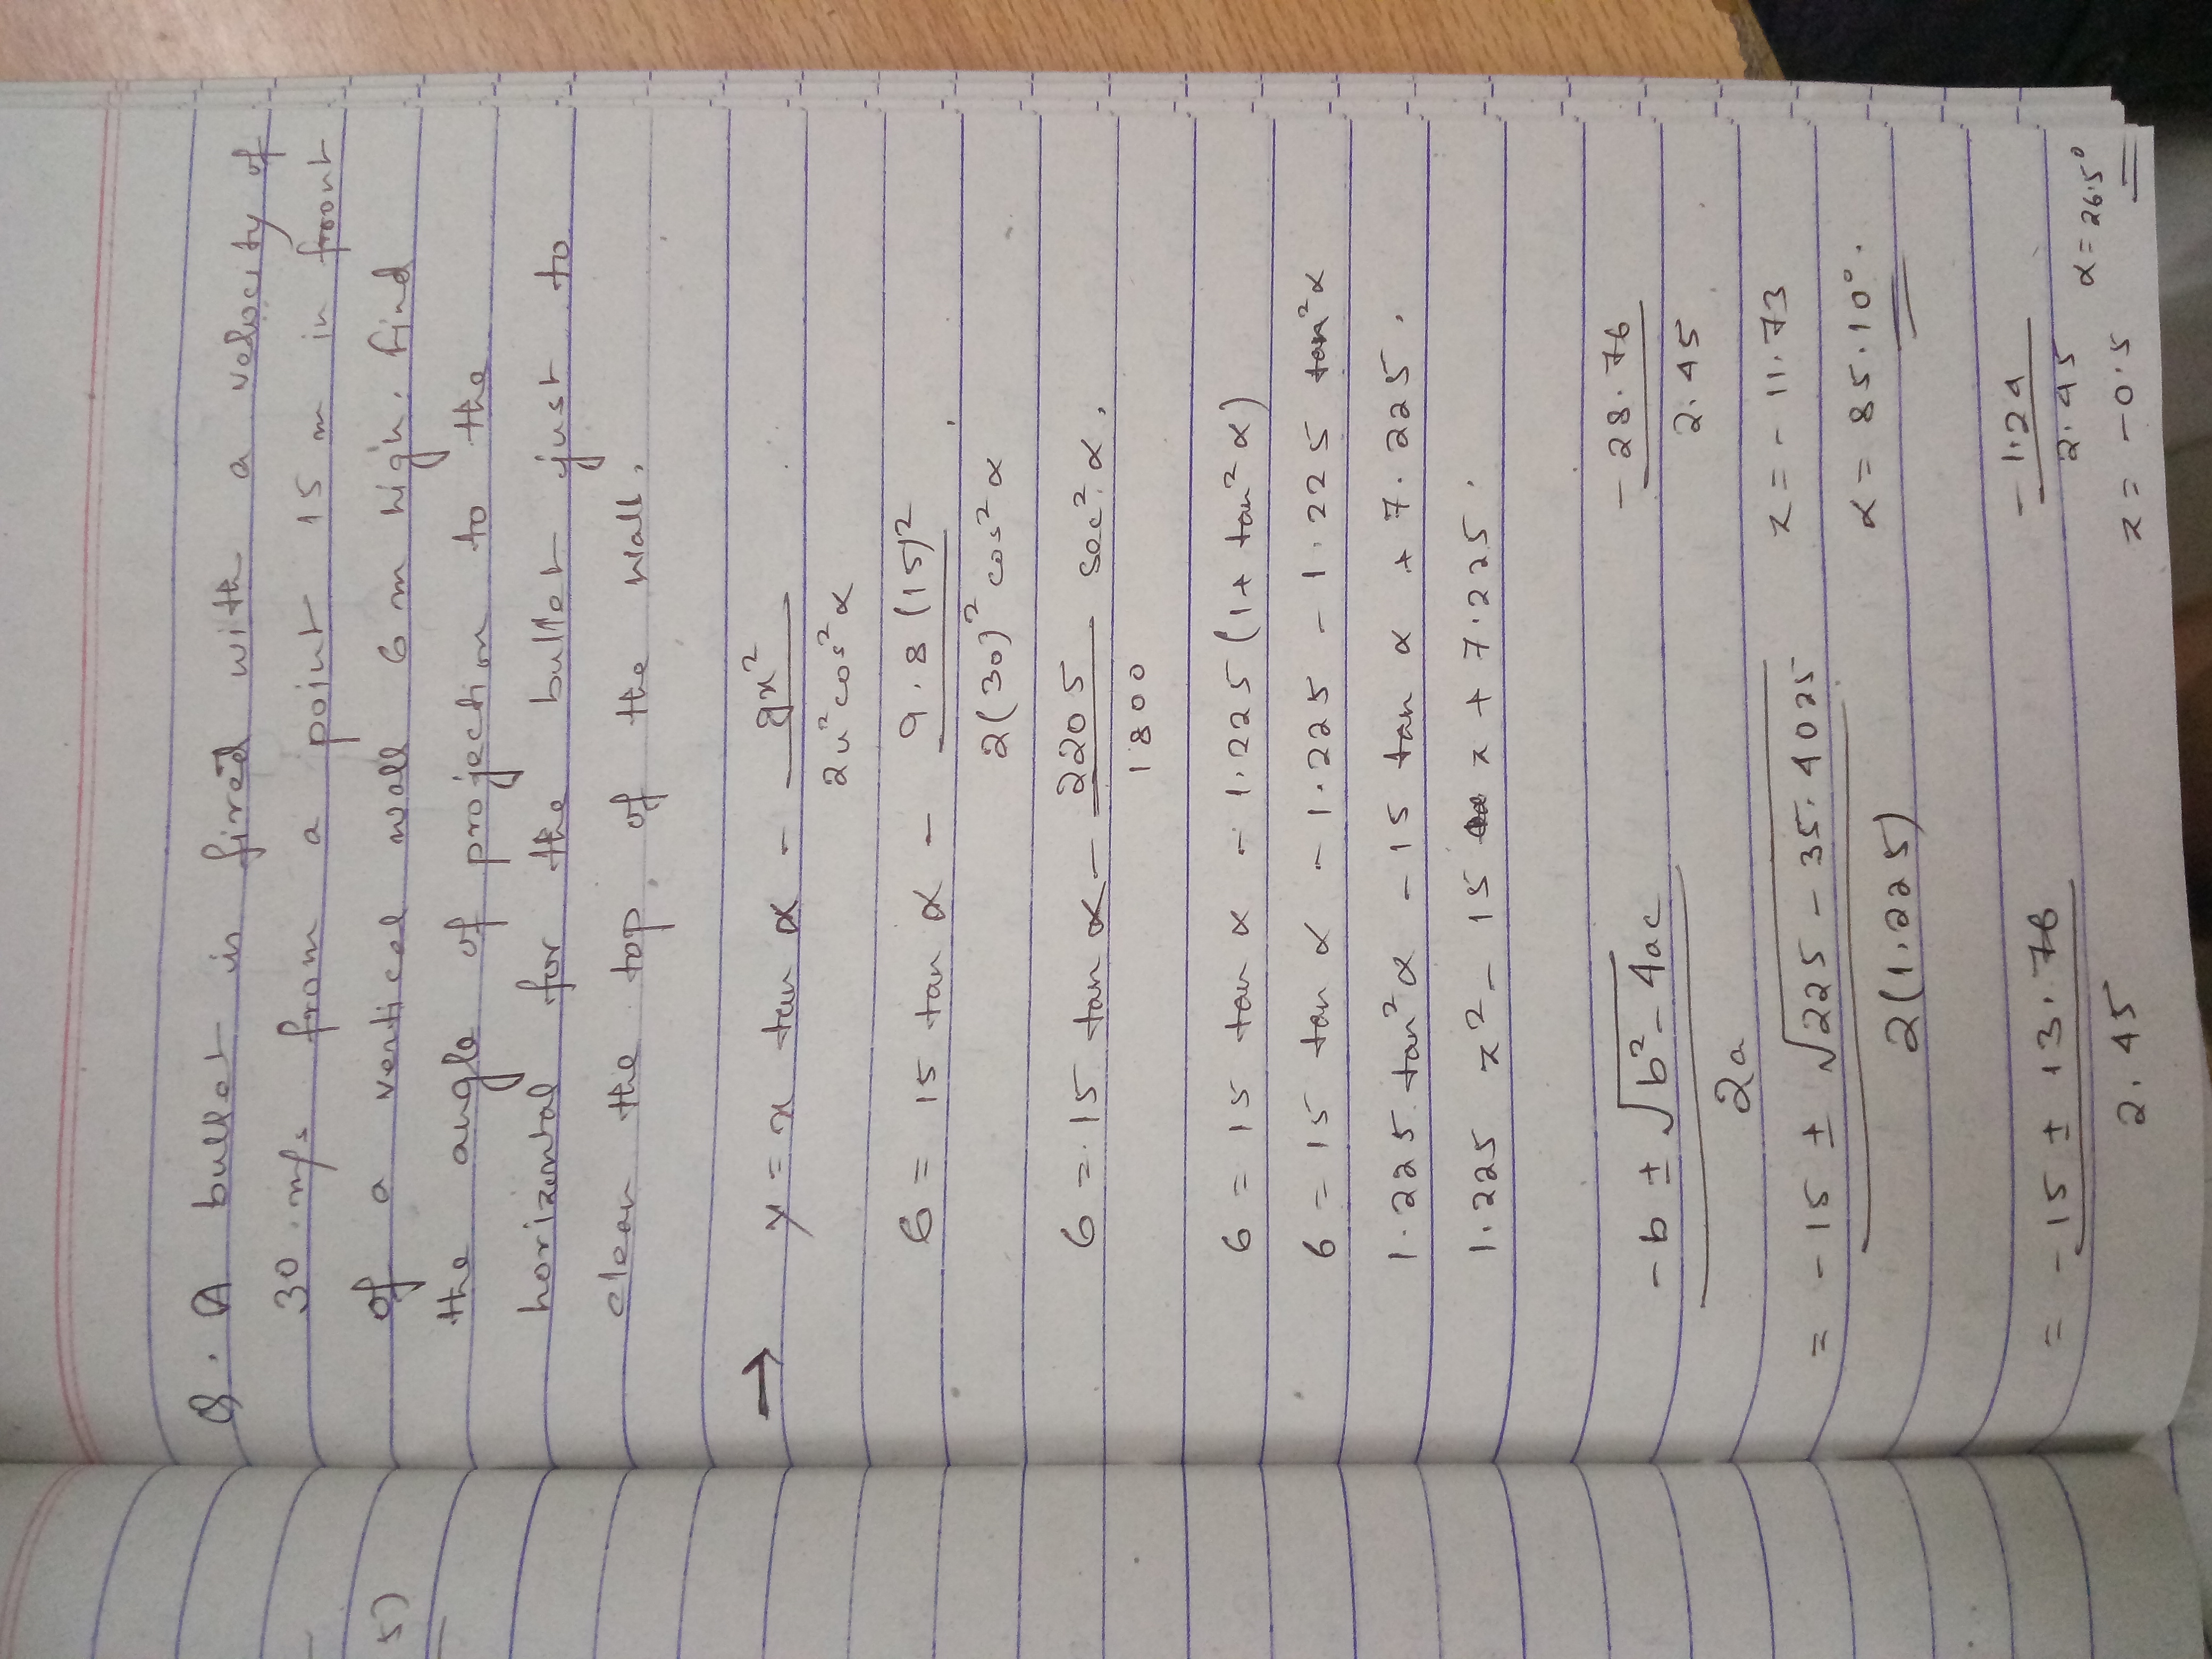 5)
Q. A bullet is fired with a velocity of
30 m/s from a point 15 m in froont
of a vertical wall 6 m high. Find
the angle of projection to the
horizontal for the bullet just to
clear the top of the wall.
→ y = x tan α - gx² / 2u²cos²α
6 = 15 tan α - 9.8 (15)² / 2(30)² cos² α
6 = 15 tan α - 2205 / 1800 sec² α.
6 = 15 tan α - 1.225 (1+ tan² α)
6 = 15 tan α - 1.225 - 1.225 tan² α
1.225 tan² α - 15 tan α + 7.225.
1.225 z² - 15 z + 7.225.
-b ± √b² - 4ac / 2a
= -15 ± √225 - 35.4025 / 2(1.225)
= -15 ± 13.76 / 2.45
-28.76 / 2.45
z = -11.73
α = 85.10°.
-1.24 / 2.45
z = -0.5
α = 26.5°